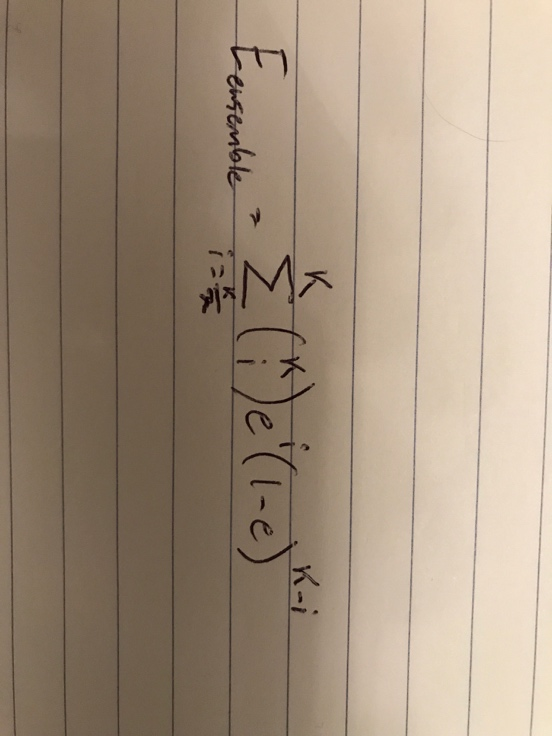 E_ensemble = \sum_{i=\frac{K}{2}}^{K} \binom{K}{i} e^i (1-e)^{K-i}